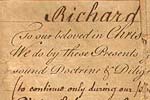 Richard
To our beloved in Christ
We do by these Presents
sound Doctrine & Dilig
to continue only during our